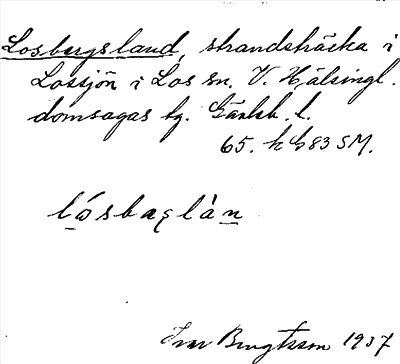 Losbergsland, strandsträcka i
Lossjön i Los sn. V. Hälsingl.
domsagas tg. Gävleb. l.
65. h 683 SM.
lósbaɽlàn
Ivar Bengtsson 1937